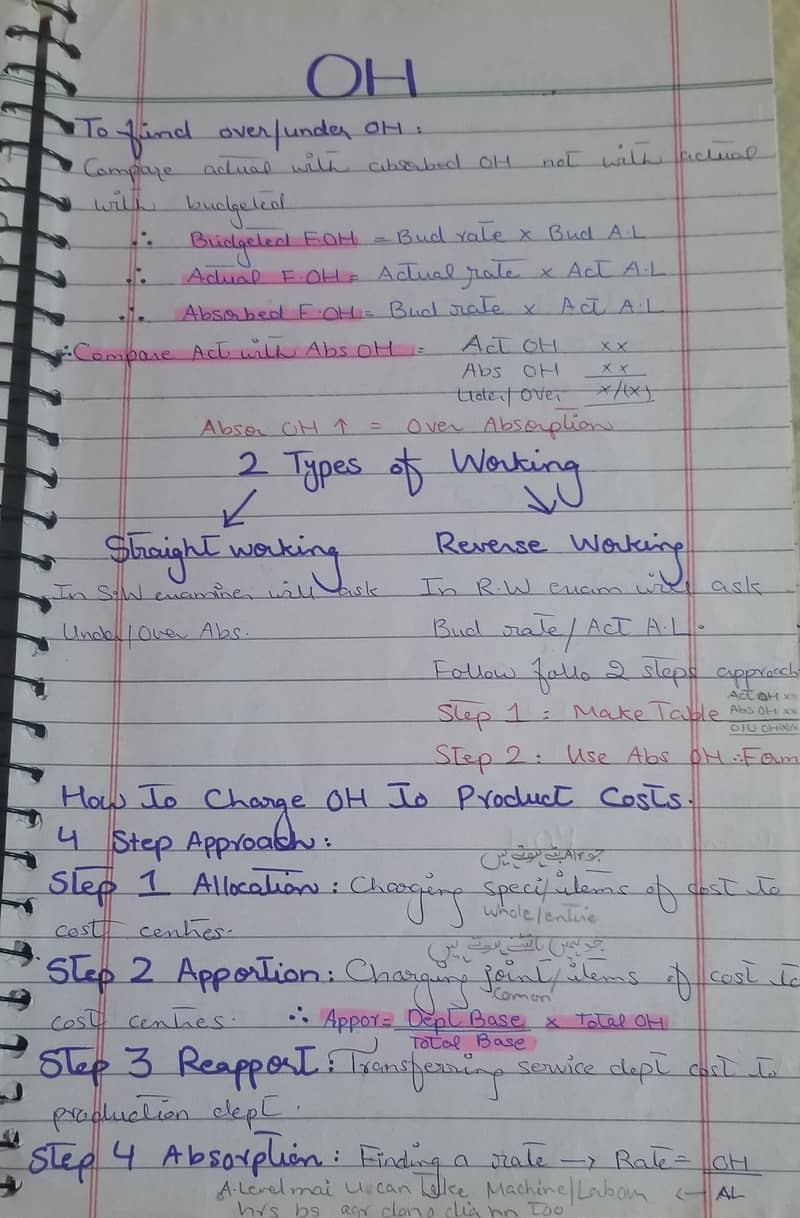 OH
To find over/under OH:
Compare actual with absorbed OH not with actual
with budgeted
∴ Budgeted F.OH = Bud rate × Bud A.L
∴ Actual F.OH = Actual rate × Act A.L
∴ Absorbed F.OH = Bud rate × Act A.L
∴ Compare Act with Abs OH = Act OH xx
Abs OH xx
Uder/Over x/(x)
Absor OH ↑ = Over Absorption
2 Types of Working
Straight working
In S.W examiner will ask
Under/Over Abs.
Reverse Working
In R.W exam will ask
Bud rate/Act A.L.
Follow follo 2 steps approach
Step 1: Make Table
Act OH xx
Abs OH xx
O/U OH
Step 2: Use Abs OH Form
How To Charge OH To Product Costs.
4 Step Approach:
Step 1 Allocation: Charging speci/items of cost to
whole/entire
cost centres.
Step 2 Apportion: Charging joint/items of cost to
Comon
cost centres. ∴ Appor = Dept Base × Total OH
Total Base
Step 3 Reapport: Transferring service dept cost to
production dept.
Step 4 Absorption: Finding a rate → Rate = OH
A.Level mai U.can Take Machine/Labour ← AL
hrs bs agr